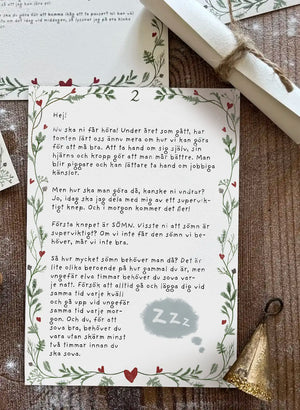 2
Hej!
Nu ska ni får höra! Under året som gått, har
tomten lärt oss ännu mera om hur vi kan göra
för att må bra. Att ta hand om sig själv, sin
hjärna och kropp gör att man mår bättre. Man
blir piggare och kan lättare ta hand om jobbiga
känslor.
Men hur ska man göra då, kanske ni undrar?
Jo, idag ska jag dela med mig av ett supervik-
tigt knep. Och i morgon kommer det fler!
Första knepet är SÖMN. Visste ni att sömn är
superviktigt? Om vi inte får den sömn vi be-
höver, mår vi inte bra.
Så hur mycket sömn behöver man då? Det är
lite olika beroende på hur gammal du är, men
ungefär elva timmar behöver du sova var-
je natt. Försök att alltid gå och lägga dig vid
samma tid varje kväll
och gå upp vid ungefär
samma tid varje mor-
gon. Och du, för att
sova bra, behöver du
vara utan skärm minst
två timmar innan du
ska sova.
ZZz